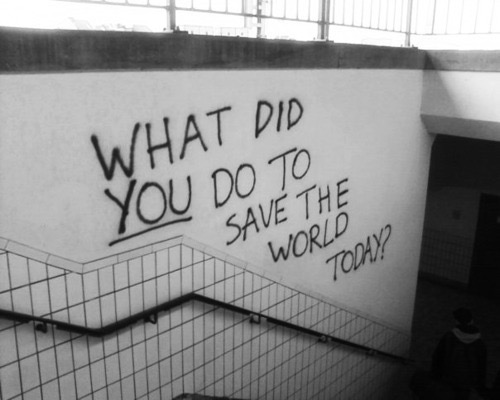 WHAT DID
YOU DO TO
SAVE THE
WORLD
TODAY?